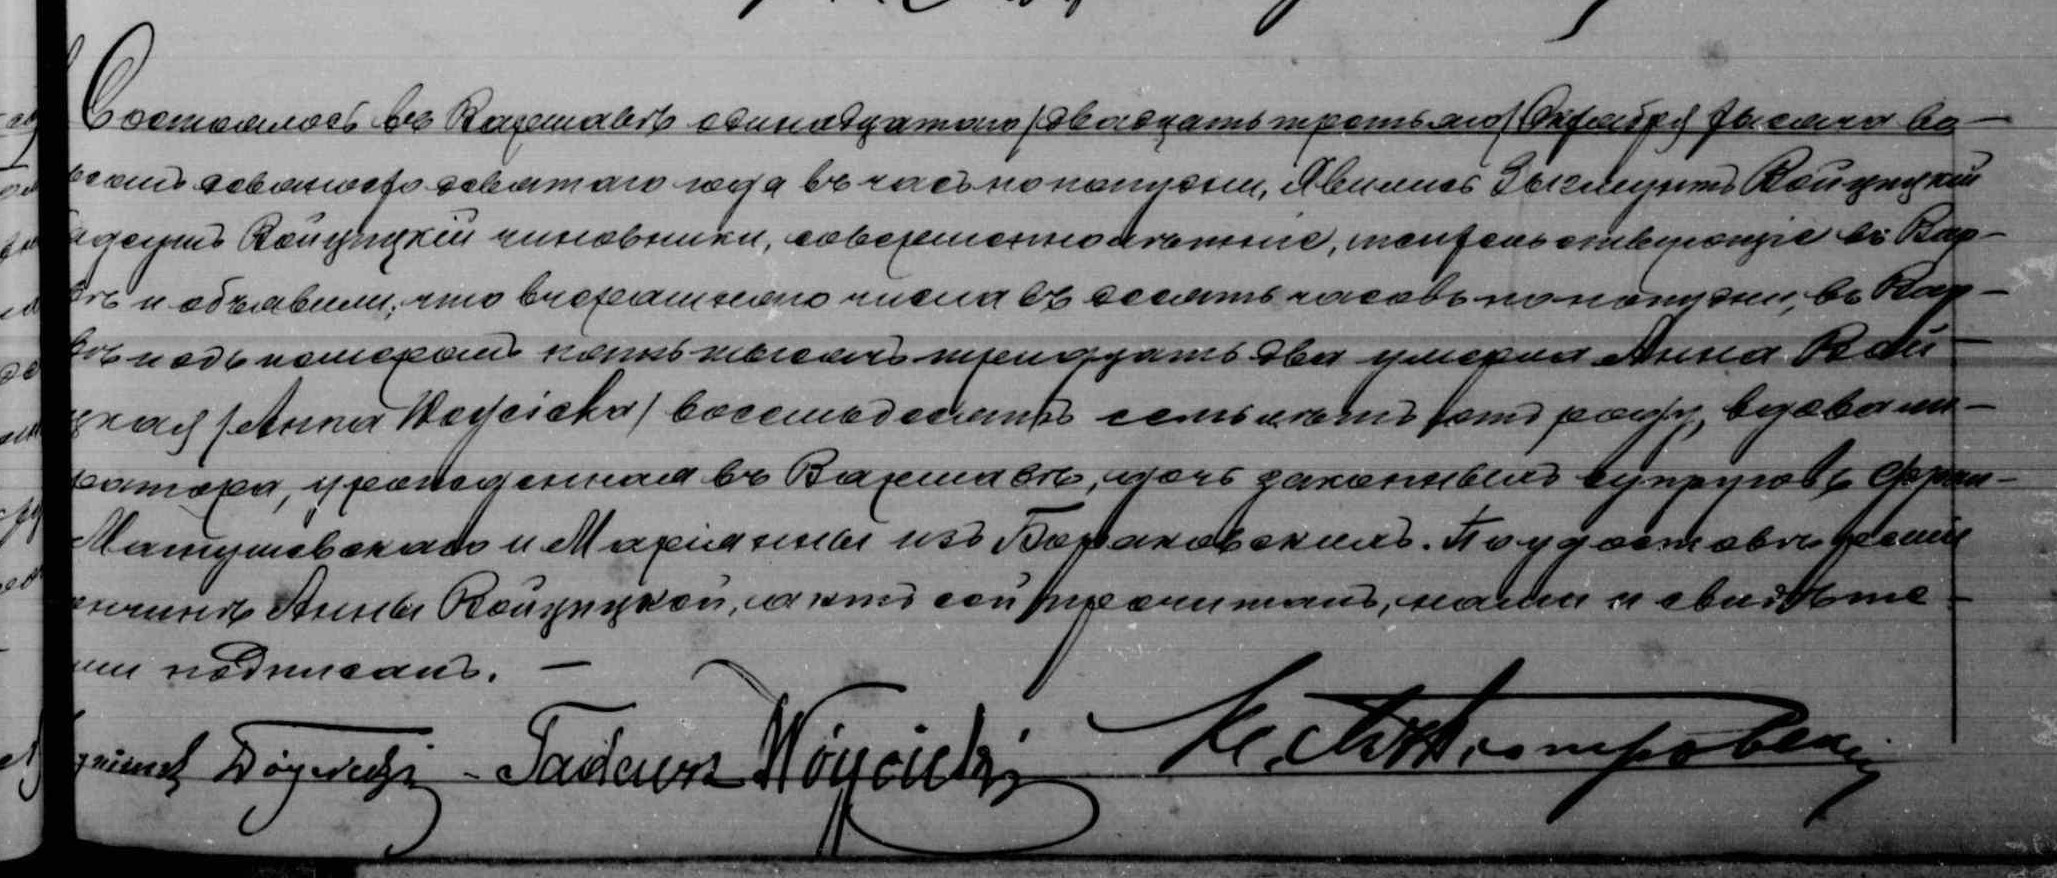 Состоялось въ Варшавѣ одинадцатаго /двадцать третьяго/ Октября тысяча во-
семь девяносто девятаго года въ часъ пополудни, Явились Зыгмунтъ Войцицкій
адеушъ Войцицкій чиновники, совершеннолѣтніе, жительствующіе въ Вар-
вѣ и объявили, что вчерашняго числа въ десять часовъ пополудни, въ Вар-
вѣ подъ номеромъ пять тысячъ тридцать два умерла Анна Вой-
цкая /Anna Woycicka/ восемьдесятъ семь лѣтъ отъ роду, вдова ли-
ратора, урожденная въ Варшавѣ, дочь законныхъ супруговъ Фран-
Матушевскаго и Маріянны изъ Бораковскихъ. По удостовѣреніи
ончинѣ Анны Войцицкой, актъ сей прочитанъ, нами и свидѣте-
ми подписанъ. —
Wóycicki - Tadeusz Wóycicki